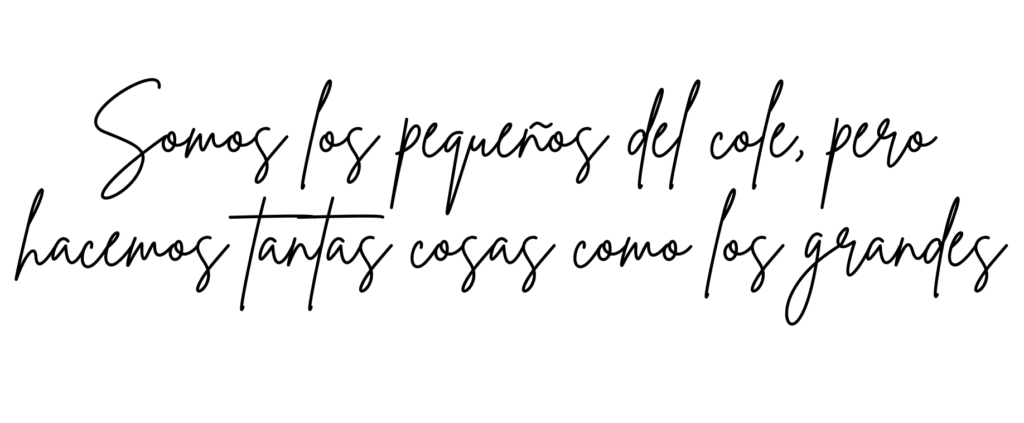 Somos los pequeños del cole, pero
hacemos tantas cosas como los grandes